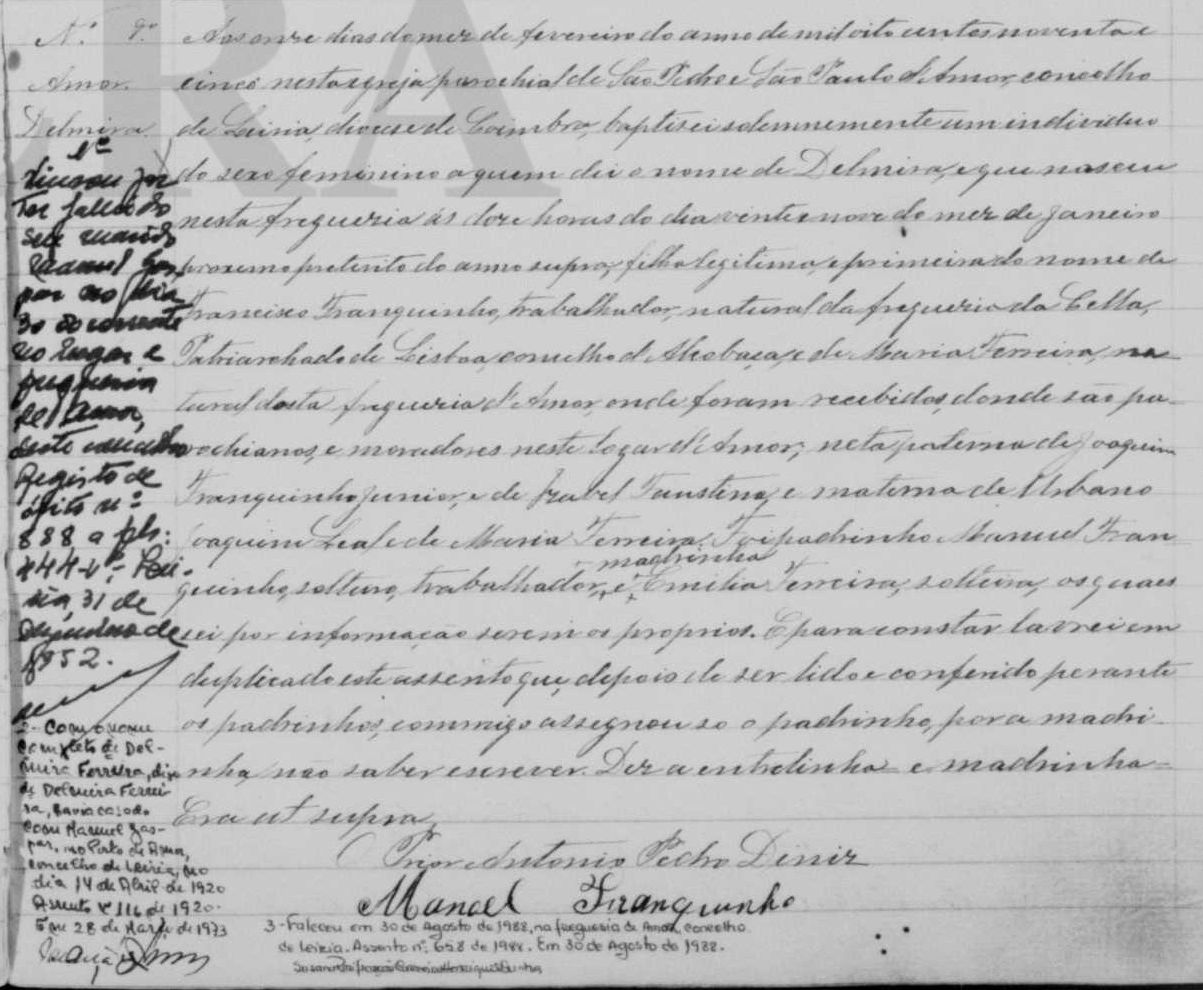 N.º 9.º
Amor.
Delmira.
Aos onze dias do mez de fevereiro do anno de mil oito centos noventa e
cinco nesta egreja parochial de São Pedro e São Paulo d'Amor, concelho
de Leiria, diocese de Coimbra, baptisei solemnemente um individuo
do sexo feminino a quem dei o nome de Delmira, e que nasceu
nesta freguezia ás doze horas do dia vinte e nove do mez de Janeiro
proximo preterito do anno supra, filha legitima, e primeira do nome de
Francisco Franquinho, trabalhador, natural da freguezia da Cella,
Patriarchado de Lisboa, concelho d'Alcobaça, e de Maria Ferreira, na
tural desta freguezia d'Amor, onde foram recebidos, donde são pa-
rochianos, e moradores neste logar d'Amor; neta paterna de Joaquim
Franquinho Junior, e de Izabel Faustina, e materna de Urbano
Joaquim Leal e de Maria Ferreira. Foi padrinho Manuel Fran
madrinha
quinho, solteiro, trabalhador, e Emilia Ferreira, solteira, os quaes
sei por informação serem os proprios. E para constar lavrei em
duplicado este assento que, depois de ser lido e conferido perante
os padrinhos, commigo assegnou só o padrinho, por a madri-
nha não saber escrever. Diz a entrelinha = e madrinha =
Era ut supra,
O Prior Antonio Pedro Diniz
Manoel Franquinho
1º
Viuvou por
ter falecido
seu marido
Manuel Gas-
par no dia
30 do corrente
no lugar e
freguesia
de Amor,
deste concelho
Registo de
óbito nº
888 a fls:
444-vº - Lei-
ria, 31 de
Dezembro de
1952.
2- Com o nome
completo de Del-
mira Ferreira, digo
de Delmira Ferrei
ra, havia casado
com Manuel Gas-
par, no Posto de Amor,
concelho de Leiria, no
dia 14 de Abril de 1920
Assento nº 116 de 1920.
Em 28 de Março de 1973
3-Faleceu em 30 de Agosto de 1988, na freguesia de Amor, concelho
de Leiria. Assento nº. 658 de 1988. Em 30 de Agosto de 1988.